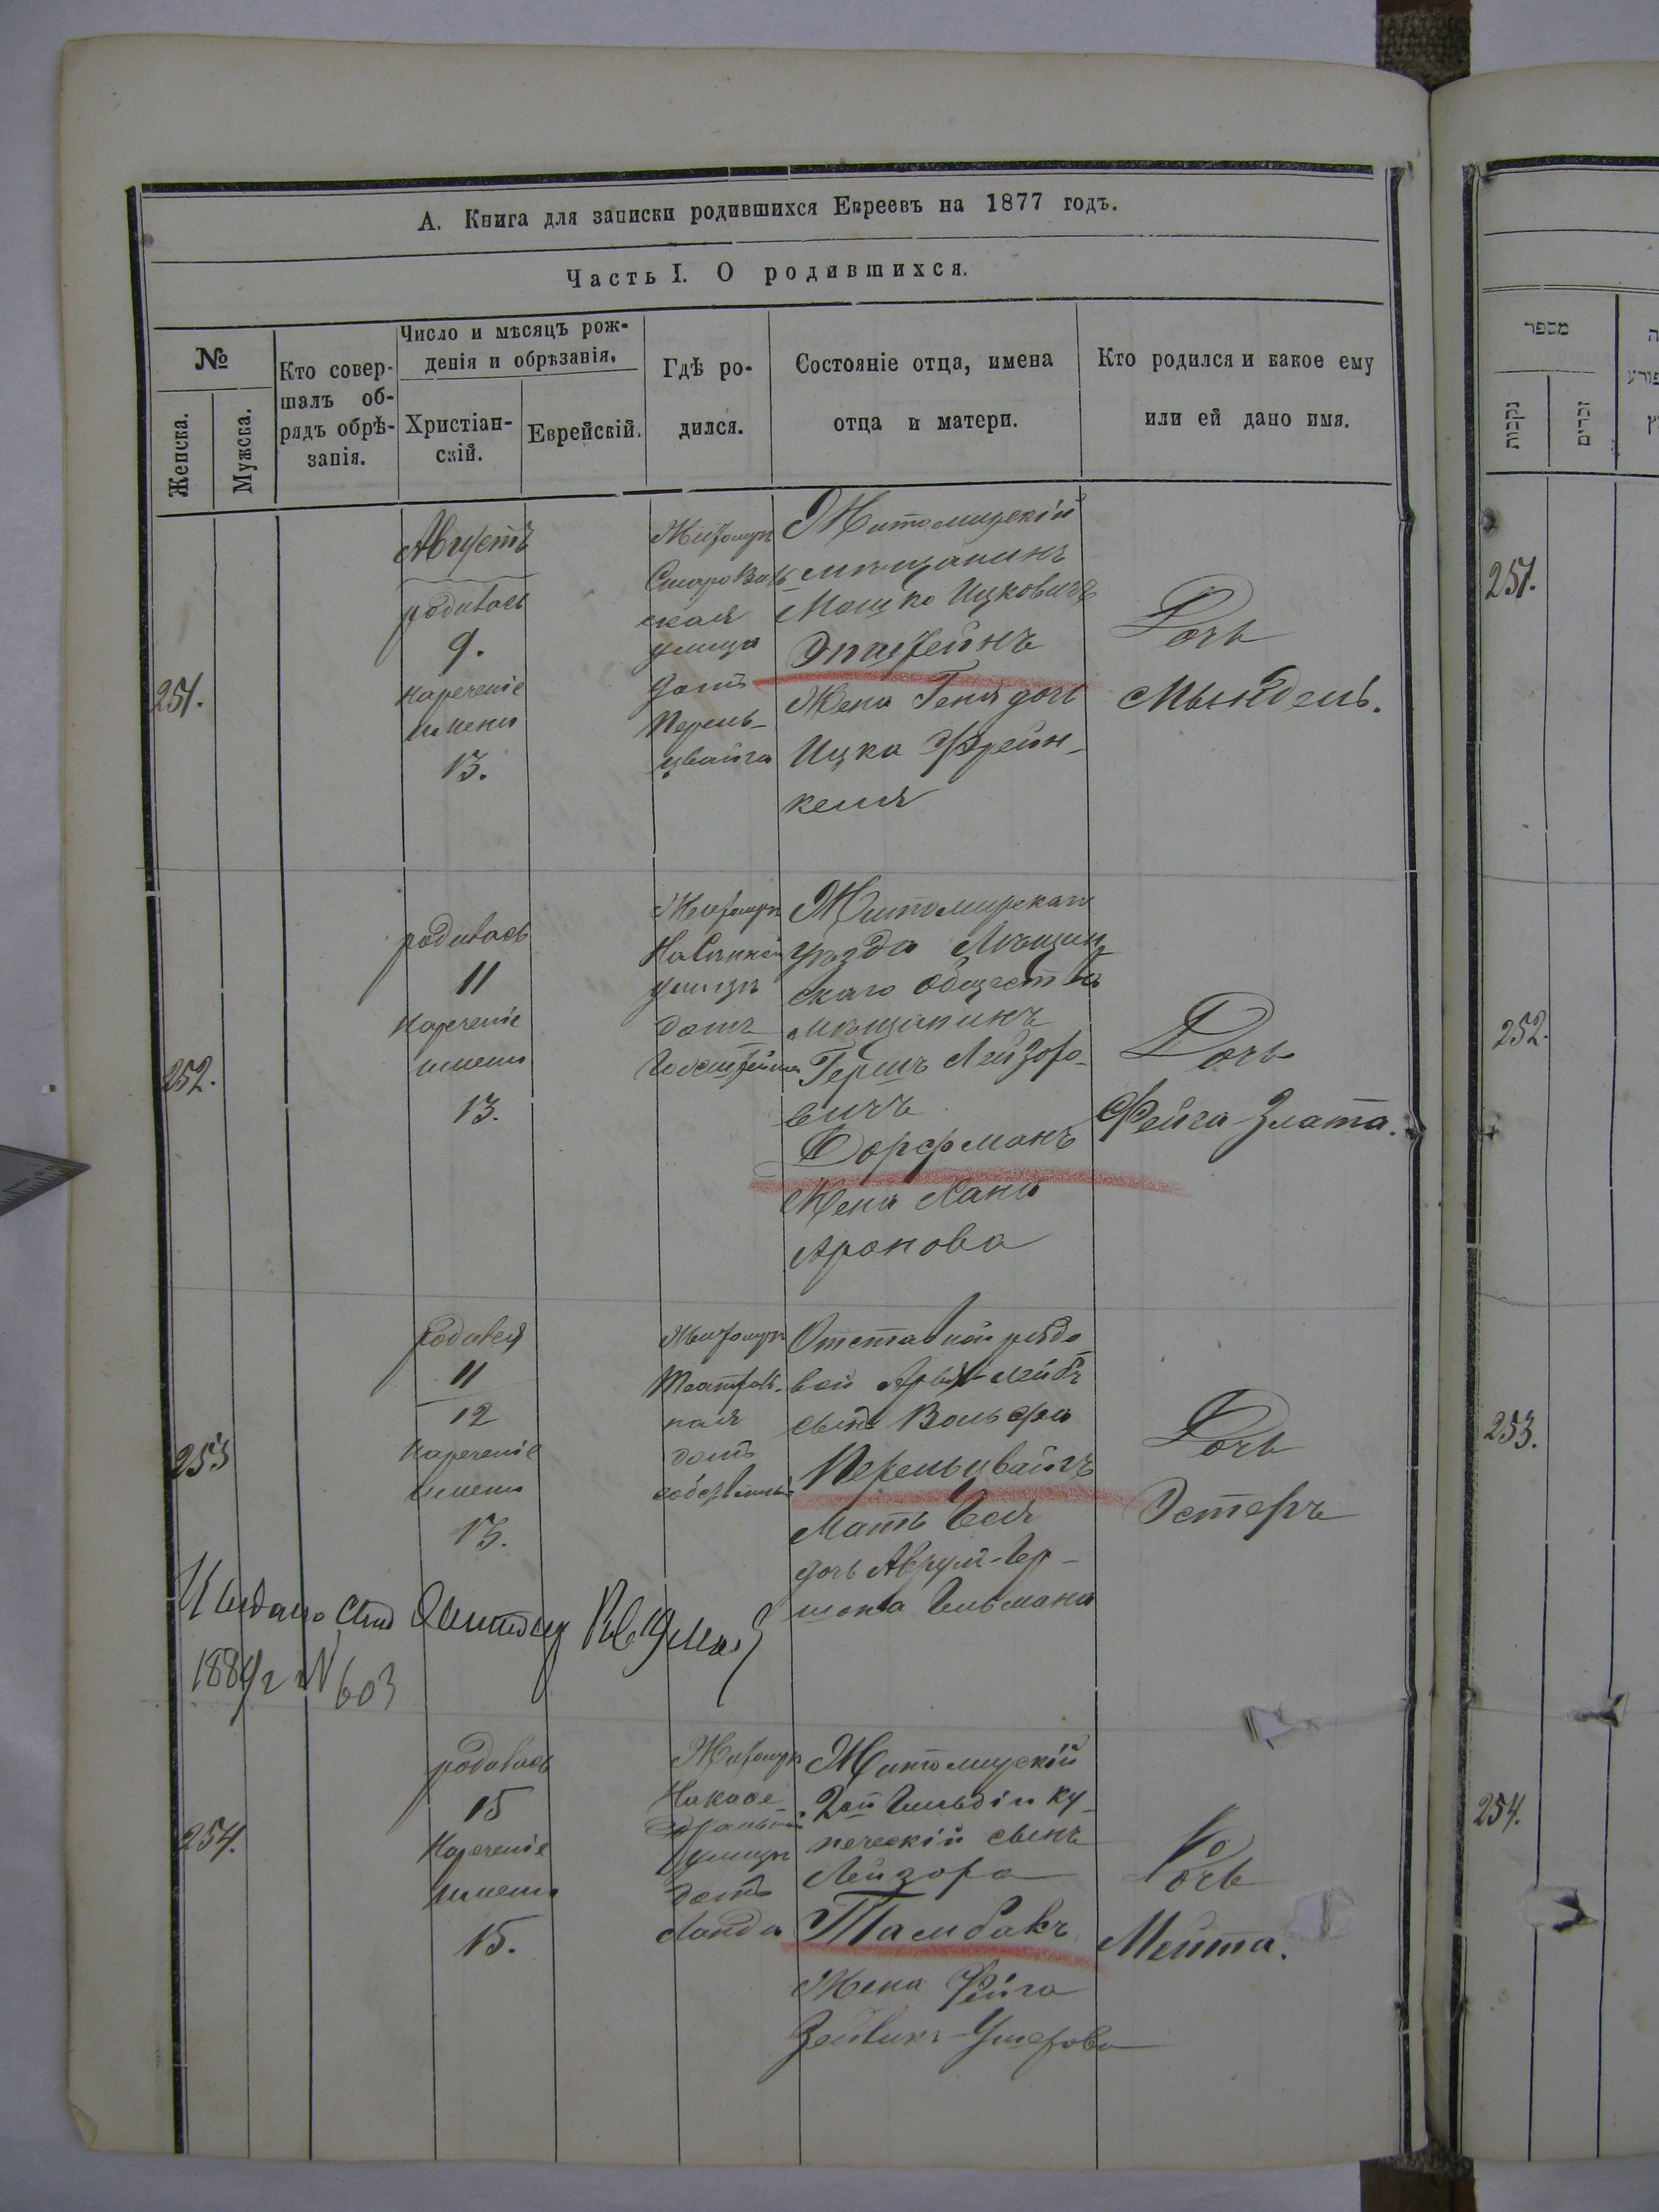 А. Книга для записки родившихся Евреевъ на 1877 годъ.
Часть I. О родившихся.
№
Женска.
Мужска.
Кто совер-
шалъ об-
рядъ обрѣ-
занія.
Число и мѣсяцъ рож-
денія и обрѣзанія.
Христіан-
скій.
Еврейскій.
Гдѣ ро-
дился.
Состояніе отца, имена
отца и матери.
Кто родился и какое ему
или ей дано имя.
251.
Августъ
родилась
9.
нареченіе
имени
13.
Житомиръ
ская
улица
домъ
Перель-
цвайга
Житомирскій
мѣщанинъ
Мошко Ицковичъ
Эпштейнъ
Жена Геня дочь
Ицка Френ-
келя
Дочь
Мындель.
252.
родилась
11
нареченіе
имени
13.
Житомиръ
улицѣ
домъ
Житомирскаго
уѣзда
скаго общества
мѣщанинъ
Гершъ Лейзоро-
вичъ
Дорфманъ
Жена Хана
Аронова
Дочь
Фейга-Злата.
253
родився
11
12
нареченіе
имени
13.
Житомиръ
домъ
собственный
Отставной рядо-
вой Арья-Лейбъ
сынъ Вольфа
Перельцвайгъ
Мать
дочь Аврум-Гер-
шона Гильмана
Дочь
Эстеръ
1889 г № 603
254.
родилась
15
нареченіе
имени
15.
Житомиръ
На каѳе-
дральной
улицѣ
домъ
Ланда
Житомирскій
2ой Гильдіи ку-
печескій сынъ
Лейзоръ
Тамбакъ
Жена Фейга
Дочь
Мейта.
מספר
נקבות
זכרים
251.
252.
253.
254.